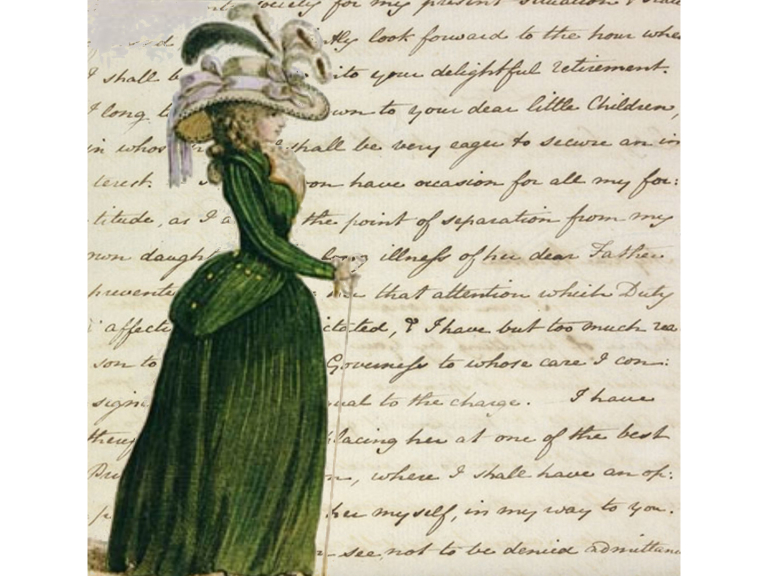 for my present situation &
look forward to the hour when
I shall b ito your delightful retirement.
I long t own to your dear little Children,
in whos shall be very eager to secure an in
terest. on have occasion for all my for:
titude, as I a the point of separation from my
own daugh long illness of her dear Father
prevente her that attention which Duty
& affecti ictated, & I have but too much rea
son to Governess to whose care I con:
sign ual to the charge. I have
there lacing her at one of the best
n, where I shall have an op:
her myself, in my way to you.
see not to be denied admittan